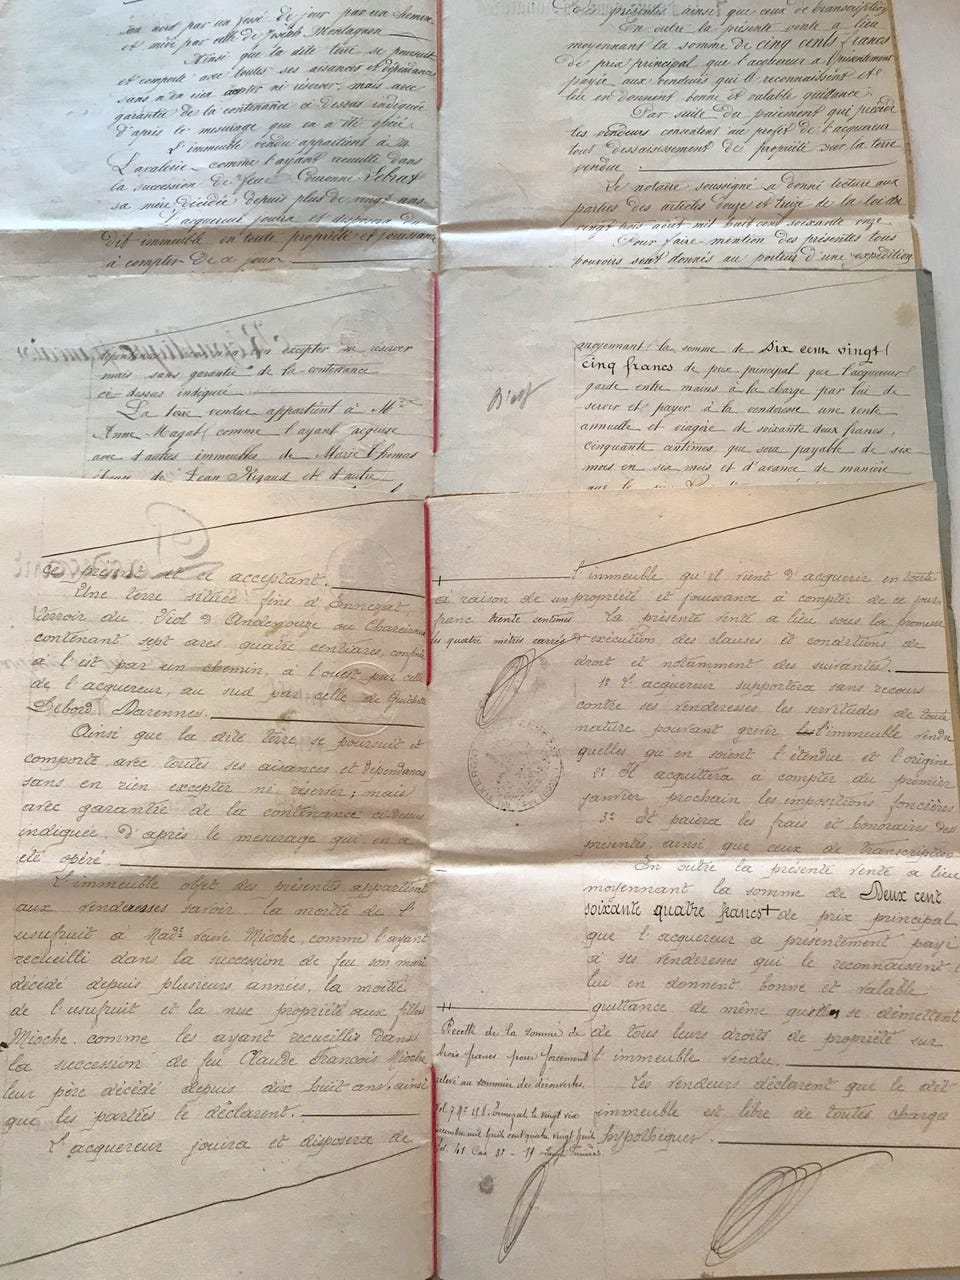 sera nord par un fossé de jour par un chemin
et midi par celle de Joseph Montagnon
Ainsi que la dite terre se poursuit
et comporte avec toutes ses aisances et dépendances
sans n'en rien excepter ni réserver, mais avec
garantie de la contenance ci dessus indiquée
d'après le mesurage qui en a été opéré.
L'immeuble vendu appartient à M
Lavalerie comme l'ayant recueilli dans
la succession de feue Couronne Lebrat
sa mère décédée depuis plus de vingt ans
L'acquéreur jouira et disposera du
dit immeuble en toute propriété et jouissance
à compter de ce jour
des présentes ainsi que ceux de transcription
En outre la présente vente a lieu
moyennant la somme de cinq cents francs
de prix principal que l'acquéreur a présentement
payée aux vendeurs qui le reconnaissent et
lui en donnent bonne et valable quittance.
Par suite du paiement qui précède
les vendeurs consentent au profit de l'acquéreur
tous dessaisissement de propriété sur la terre
vendue
Le notaire soussigné a donné lecture aux
parties des articles douze et treize de la loi du
vingt trois août mil huit cent soixante onze
Pour faire mention des présentes tous
pouvoirs sont donnés au porteur d'une expédition
excepter ni réserver
mais sans garantie de la contenance
ci dessus indiquée
La terre vendue appartient à Mme
Anne Magat comme l'ayant acquise
avec d'autres immeubles de Marie Thomas
épouse de Jean Rigaud et d'autre
moyennant la somme de Six cent vingt
cinq francs de prix principal que l'acquéreur
garde entre mains à la charge par lui de
servir et payer à la venderesse une rente
annuelle et viagère de soixante deux francs,
cinquante centimes, que sera payable de six
mois en six mois et d'avance de manière
que le
ce présent et ce acceptant.
Une terre située fins d'Ennezat
terroir du Viol d'Andenouze ou
contenant sept ares quatre centiares, confiné
à l'est par un chemin, à l'ouest par celle
de l'acquéreur, au sud par celle de Guichette
Debord Darennes.
Ainsi que la dite terre se poursuit et
comporte avec toutes ses aisances et dépendances
sans en rien excepter ni réserver; mais
avec garantie de la contenance ci-dessus
indiquée, d'après le mesurage qui en a
été opéré
L'immeuble objet des présentes appartient
aux venderesses savoir: la moitié de l'
usufruit à Made veuve Mioche, comme l'ayant
recueilli dans la succession de feu son mari
décédé depuis plusieurs années, la moitié
de l'usufruit et la nue propriété aux filles
Mioche, comme les ayant recueillis dans
la succession de feu Claude François Mioche
leur père décédé depuis dix huit ans, ainsi
que les parties le déclarent.
L'acquéreur jouira et disposera de
à raison de un
franc trente centimes
les quatre mètres carrés
l'immeuble qu'il vient d'acquérir en toute
propriété et jouissance à compter de ce jour
La présente vente a lieu sous la promesse
d'exécution des clauses et conditions de
droit et notamment des suivantes.
1° L'acquéreur supportera sans recours
contre ses venderesses les servitudes de toute
nature pouvant grever l'immeuble vendu
quelles qu'en soient l'étendue et l'origine
2° Il acquittera à compter du premier
janvier prochain les impositions foncières
3° Et paiera les frais et honoraires des
présentes ainsi que ceux de transcription
En outre la présente vente a lieu
moyennant la somme de Deux cent
soixante quatre francs+ de prix principal
que l'acquéreur a présentement payé
à ses venderesses qui le reconnaissent
lui en donnent bonne et valable
quittance de même qu'elles se démettent
de tous leurs droits de propriété sur
l'immeuble vendu.
Les vendeurs déclarent que le dit
immeuble est libre de toutes charges
hypothéquer.
Recette de la somme de
trois francs pour forcement
relevé au sommier du découvertes
vol. 7 n° 118. Ennezat, le vingt six
décembre mil huit cent quatre vingt huit
fol. 41 Cas